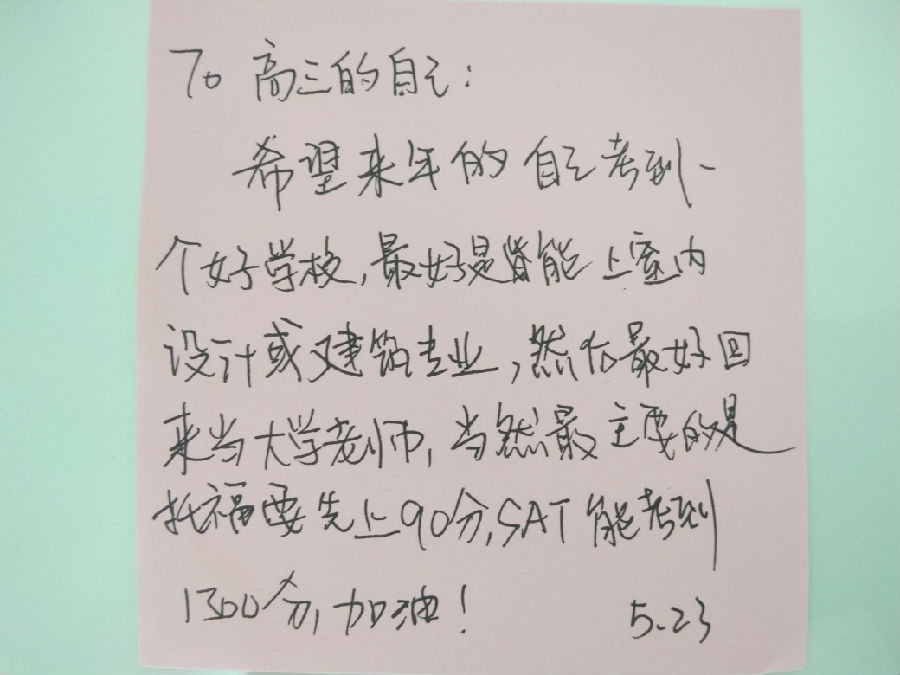 To 高三的自己：
希望来年的自己考到一
个好学校，最好是能上室内
设计或建筑专业，然后最好回
来当大学老师，当然最主要的是
托福要先上90分，SAT能考到
1300分，加油！ 5.23